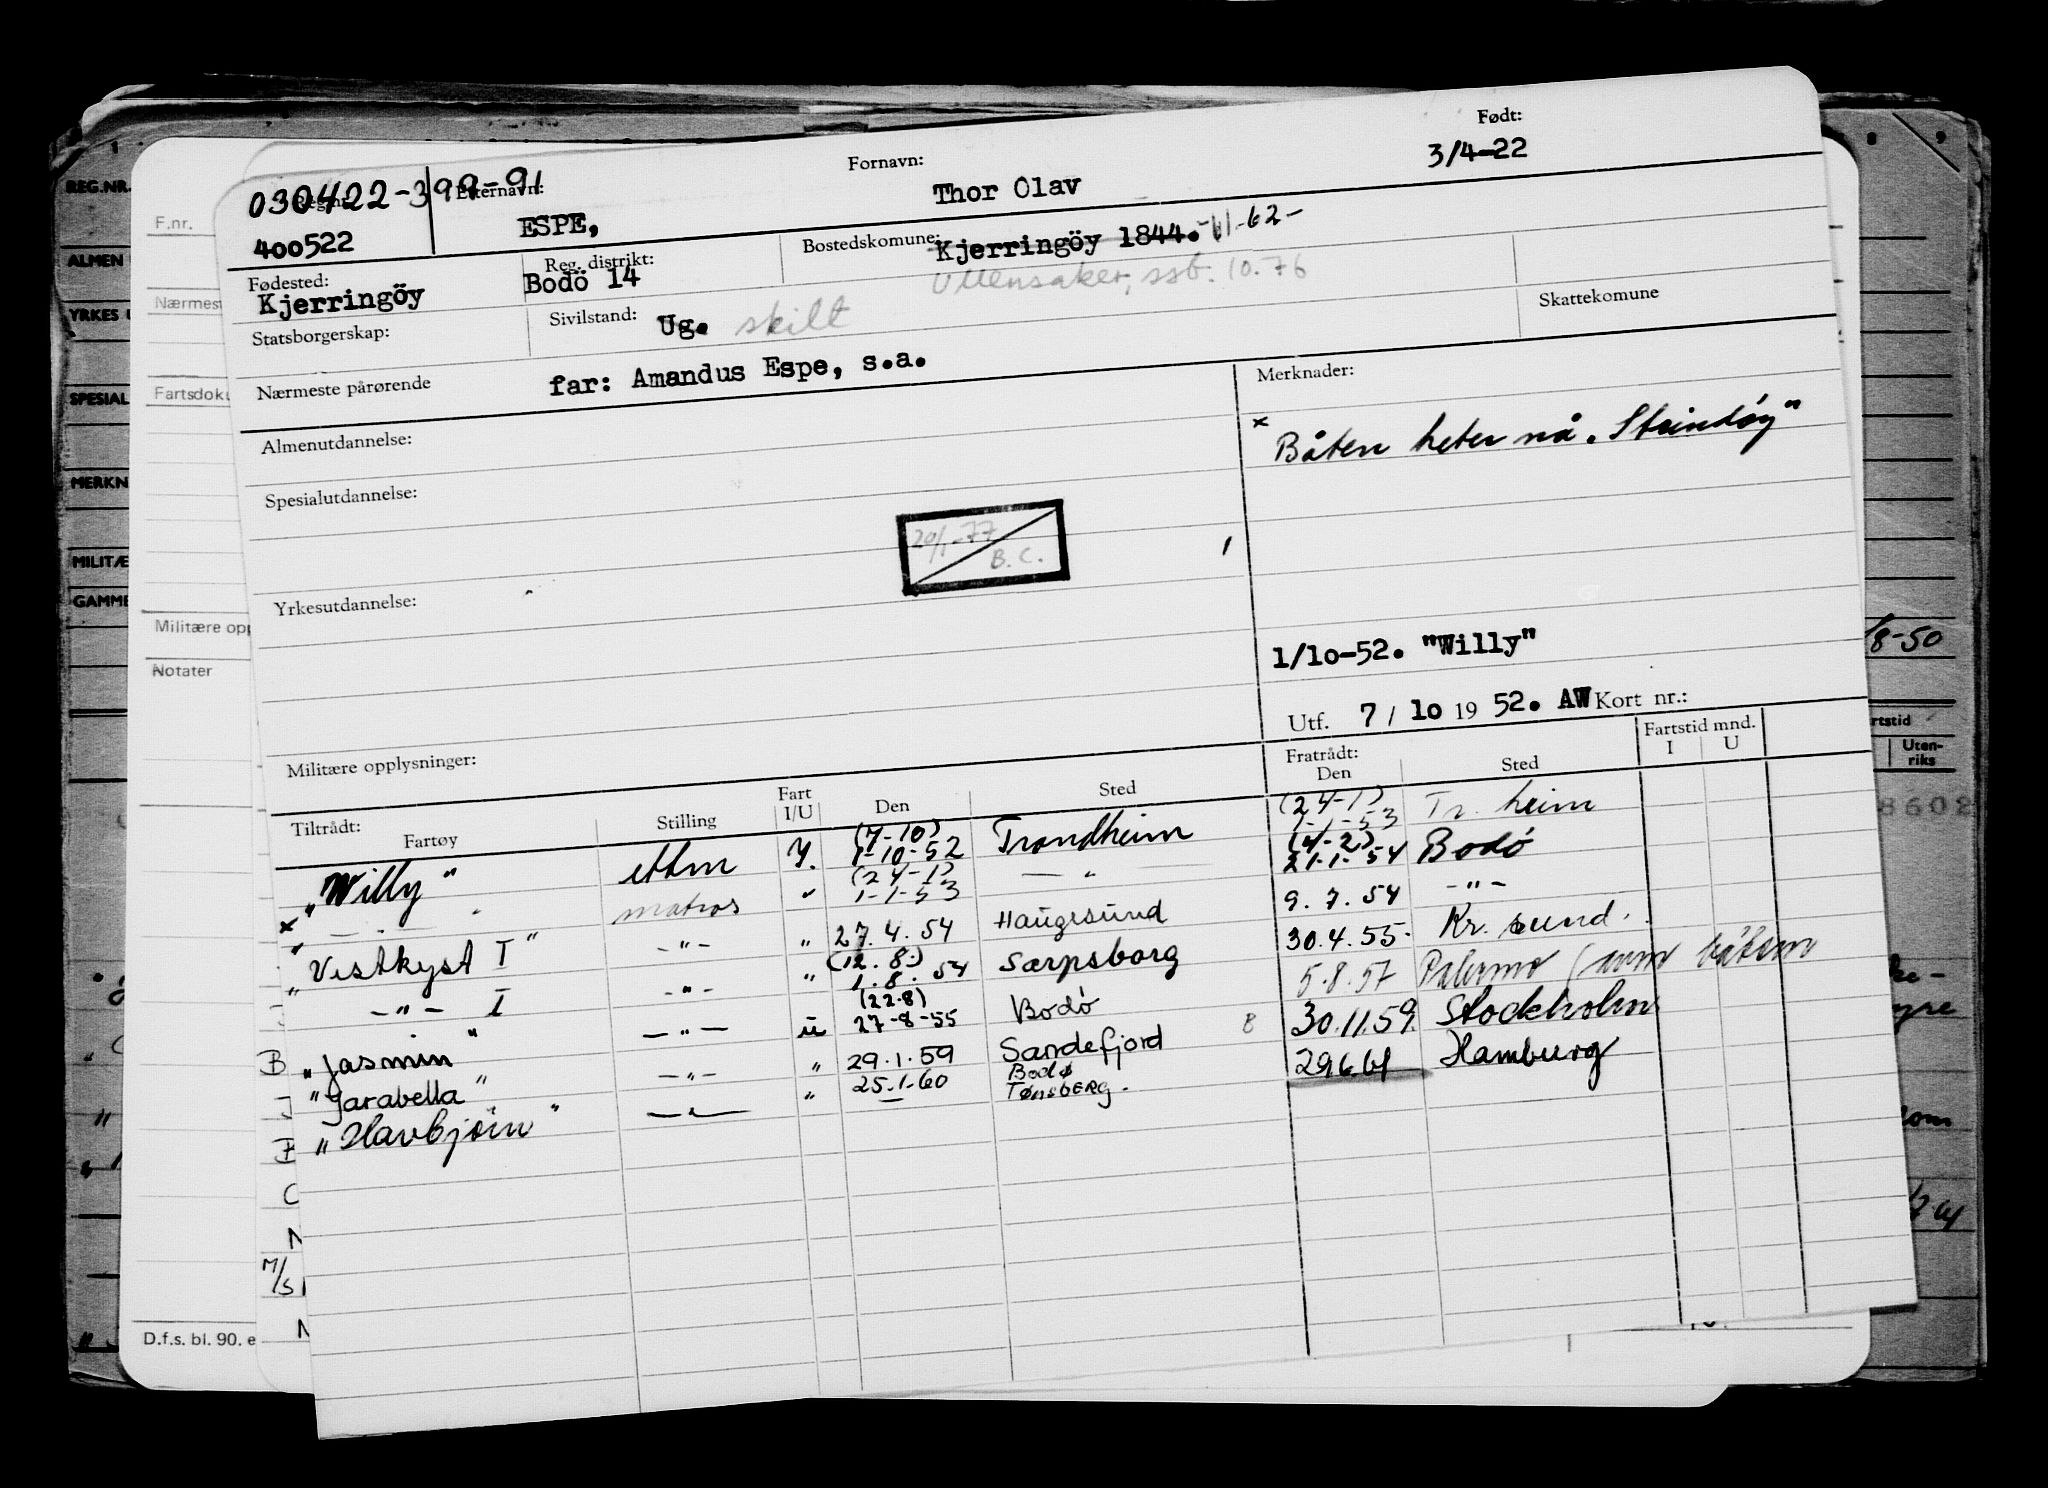 Født:
Fornavn:
3/4-22
030422-399-91
Reg.nr.
Etternavn:
Thor Olav
ESPE,
400522
Bostedskommune:
Kjerringöy 1844. -62-
Reg. distrikt:
Fødested:
Bodö 14
Kjerringöy
Ullensaker, ssb. 10.76
Skattekomune
Sivilstand:
Ug. skilt
Statsborgerskap:
Nærmeste pårørende
far: Amandus Espe, s.a.
Merknader:
x Båten heter nå "Strindøy"
Almenutdannelse:
Spesialutdannelse:
20/1-77
B.C.
Yrkesutdannelse:
1/10-52. "Willy"
Utf. 7 / 10 19 52. AW Kort nr.:
Militære opplysninger:
Fratrådt:
Den
Sted
Fartstid mnd.
I U
Tiltrådt:
Fartøy
Stilling
Fart
I/U
Den
Sted
"Willy" (7-10) 1-10-52 Trondheim (24-1) 1-1-53 Tr. heim
x - " - matros " (24-1) 1-1-53 — " 21-1-54 Bodø
"Vestkyst I" - " - " 27.4.54 Haugesund 9.7.54 - " -
" - " - I - " - " (12.8.) 1.8.54 Sarpsborg 30.4.55. Kr. sund.
"Jasmin" — " — u (22-8) 27-8-55 Bodø 5.8.57 Palermo
"Jarabella" - " - " 29.1.59 Sandefjord B 30.11.59. Stockholm
"Havbjørn" — " — " 25.1.60 Bodø Tønsberg. 29.6.61 Hamburg
REG.NR.
ALMEN
YRKES
SPESIAL
MERKN
MILITÆ
GAMME
F.nr.
Nærmest
Fartsdoku
Militære opp
Notater
D.f.s. bl. 90.
8 9
/8-50
rtstid
Uten-
riks